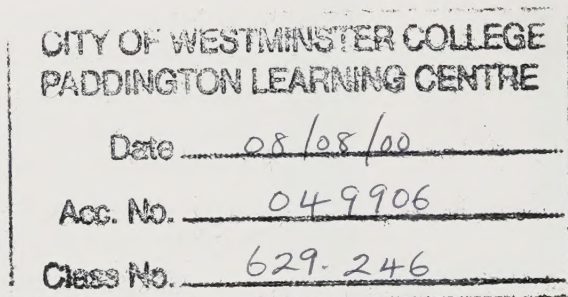 CITY OF WESTMINSTER COLLEGE
PADDINGTON LEARNING CENTRE
Date 08/08/00
Acc. No. 049906
Class No. 629.246